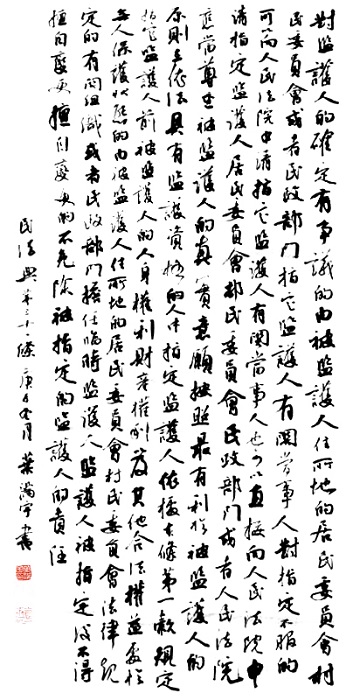 對監護人的確定有爭議的由被監護人住所地的居民委員會村
民委員會或者民政部門指定監護人有關當事人對指定不服的
可以向人民法院申請指定監護人有關當事人也可以直接向人民法院申
請指定監護人居民委員會村民委員會民政部門或者人民法院
應當尊重被監護人的真實意願按照最有利於被監護人的
原則在依法具有監護資格的人中指定監護人依據本條第一款規定
指定監護人前被監護人的人身權利財產權利以及其他合法權益處於
無人保護狀態的由被監護人住所地的居民委員會村民委員會法律規
定的有關組織或者民政部門擔任臨時監護人監護人被指定後不得
擅自變更擅自變更的不免除被指定的監護人的責任
民法典第三十一條庚子冬月葉滿宇書